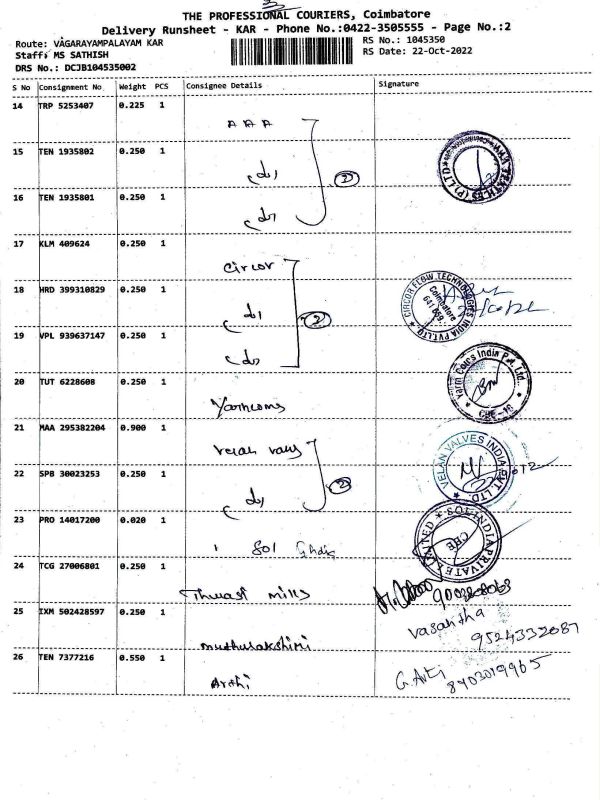 THE PROFESSIONAL COURIERS, Coimbatore
Delivery Runsheet - KAR - Phone No.:0422-3505555 - Page No.:2
Route: VAGARAYAMPALAYAM KAR
RS No.: 1045350
Staff: MS SATHISH
RS Date: 22-Oct-2022
DRS No.: DCJB104535002
S No Consignment No Weight PCS Consignee Details Signature
14 TRP 5253407 0.225 1
A A A
15 TEN 1935802 0.250 1
2
16 TEN 1935801 0.250 1
17 KLM 409624 0.250 1
Circor
18 HRD 399310829 0.250 1
2
CIRCOR FLOW TECHNOLOGIES INDIA PVT LTD
Coimbatore
641 009
19 VPL 939637147 0.250 1
20 TUT 6228608 0.250 1
Yarn Coms India Pvt. Ltd.
CBE - 18
21 MAA 295382204 0.900 1
22 SPB 30023253 0.250 1
2
VELAN VALVES INDIA PVT. LTD.
23 PRO 14017200 0.020 1
SOLINDIA PRIVATE LIMITED
CBE
24 TCG 27006801 0.250 1
mills
25 IXM 502428597 0.250 1
Vasantha
9524332087
26 TEN 7377216 0.550 1
Arthi
8903019965